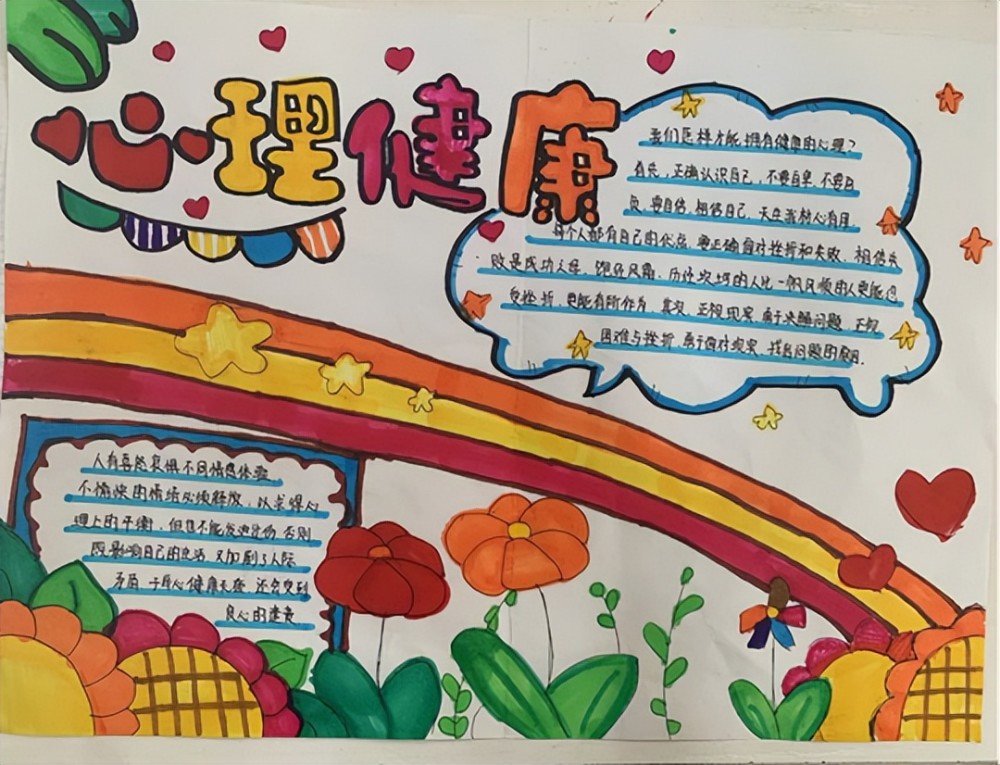 心理健康
我们怎样才能拥有健康的心理？
首先，正确认识自己，不要自卑，不要自
负，要自信，相信自己，天生我材必有用，
每个人都有自己的优点，要正确面对挫折和失败，相信失
败是成功之母，饱经风霜，历经坎坷的人比一帆风顺的人更能
受挫折，更能有所作为，其次，正视现实，勇于决解问题，正视
困难与挫折，勇于面对现实，找出问题的原因.
人有喜怒哀惧不同情感体验
不愉快的情绪必须释放，以求得心
理上的平衡，但也不能发泄过份，否则
既影响自己的生活，又加剧了人际
矛盾，于身心健康无益，还会受到
良心的谴责